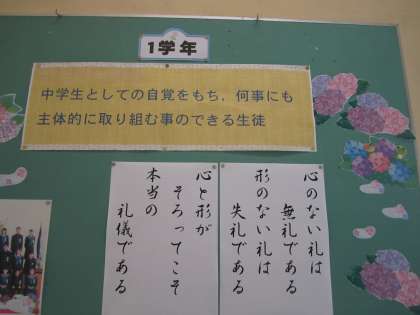 1学年
中学生としての自覚をもち，何事にも
主体的に取り組む事のできる生徒
心のない礼は
無礼である
形のない礼は
失礼である
心と形が
そろってこそ
本当の
礼儀である